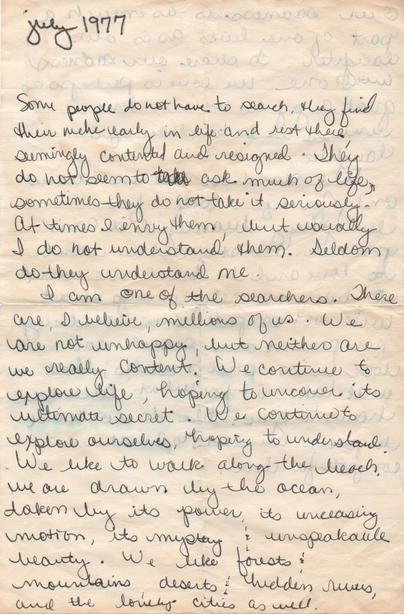 july 1977
Some people do not have to search, they find
their niche early in life and rest there
seemingly contented and resigned. They
do not seem to ask much of life,
sometimes they do not take it seriously.
At times I envy them, but usually
I do not understand them. Seldom
do they understand me.
I am one of the searchers. There
are, I believe, millions of us. We
are not unhappy, but neither are
we really content. We continue to
explore life, hoping to uncover its
ultimate secret. We continue to
explore ourselves, hoping to understand.
We like to walk along the beach,
we are drawn by the ocean,
taken by its power, its unceasing
motion, its mystery & unspeakable
beauty. We like forests &
mountains deserts & hidden rivers,
and the lonely cities as well.